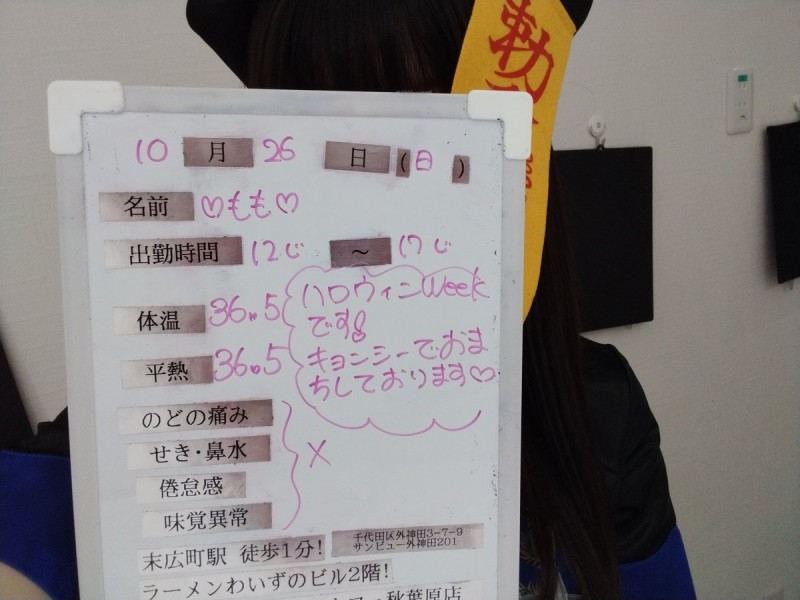 勅
10 月 26 日 (日)
名前 ♡もも♡
出勤時間 12じ 〜 17じ
体温 36.5
平熱 36.5
ハロウィンWeek
です
キョンシーでおま
ちしております♡
のどの痛み
せき・鼻水
倦怠感
味覚異常
×
末広町駅 徒歩1分!
千代田区外神田3-7-9
サンビュー外神田201
ラーメンわいずのビル2階!
秋葉原店